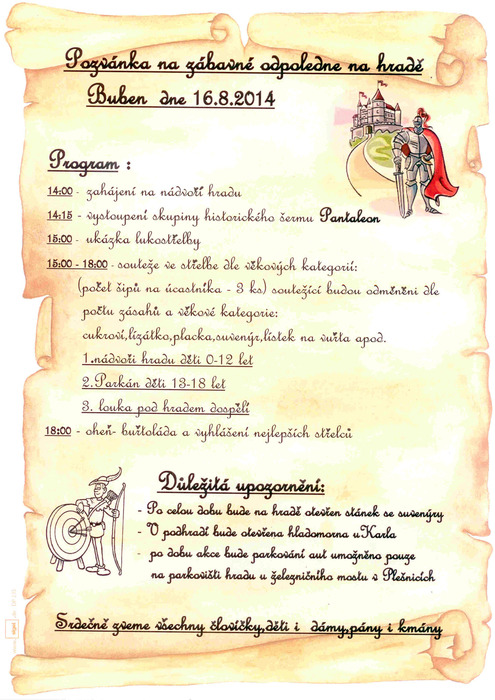 Pozvánka na zábavné odpoledne na hradě
Buben dne 16.8.2014
Program :
14:00 - zahájení na nádvoří hradu
14:15 - vystoupení skupiny historického šermu Pantaleon
15:00 - ukázka lukostřelby
15:00 - 18:00 - souteže ve střelbe dle věkových kategorií:
(počet šipů na úcastníka - 3 ks) soutežící budou odměněni dle
počtu zásahů a věkové kategorie:
cukroví,lízátko,placka,suvenýr,lístek na vuřta apod.
1.nádvoři hradu děti 0-12 let
2.Parkán děti 13-18 let
3. louka pod hradem dospělí
18:00 - oheň- buřtoláda a vyhlášení nejlepších střelců
Důležitá upozornění:
- Po celou dobu bude na hradě otevřen stánek se suvenýry
- V podhradí bude otevřena hladomorna u Karla
- po dobu akce bude parkování aut umožněno pouze
na parkovišti hradu u železničního mostu v Plešnicích
Srdečně zveme všechny človíčky,děti i dámy,pány i kmány